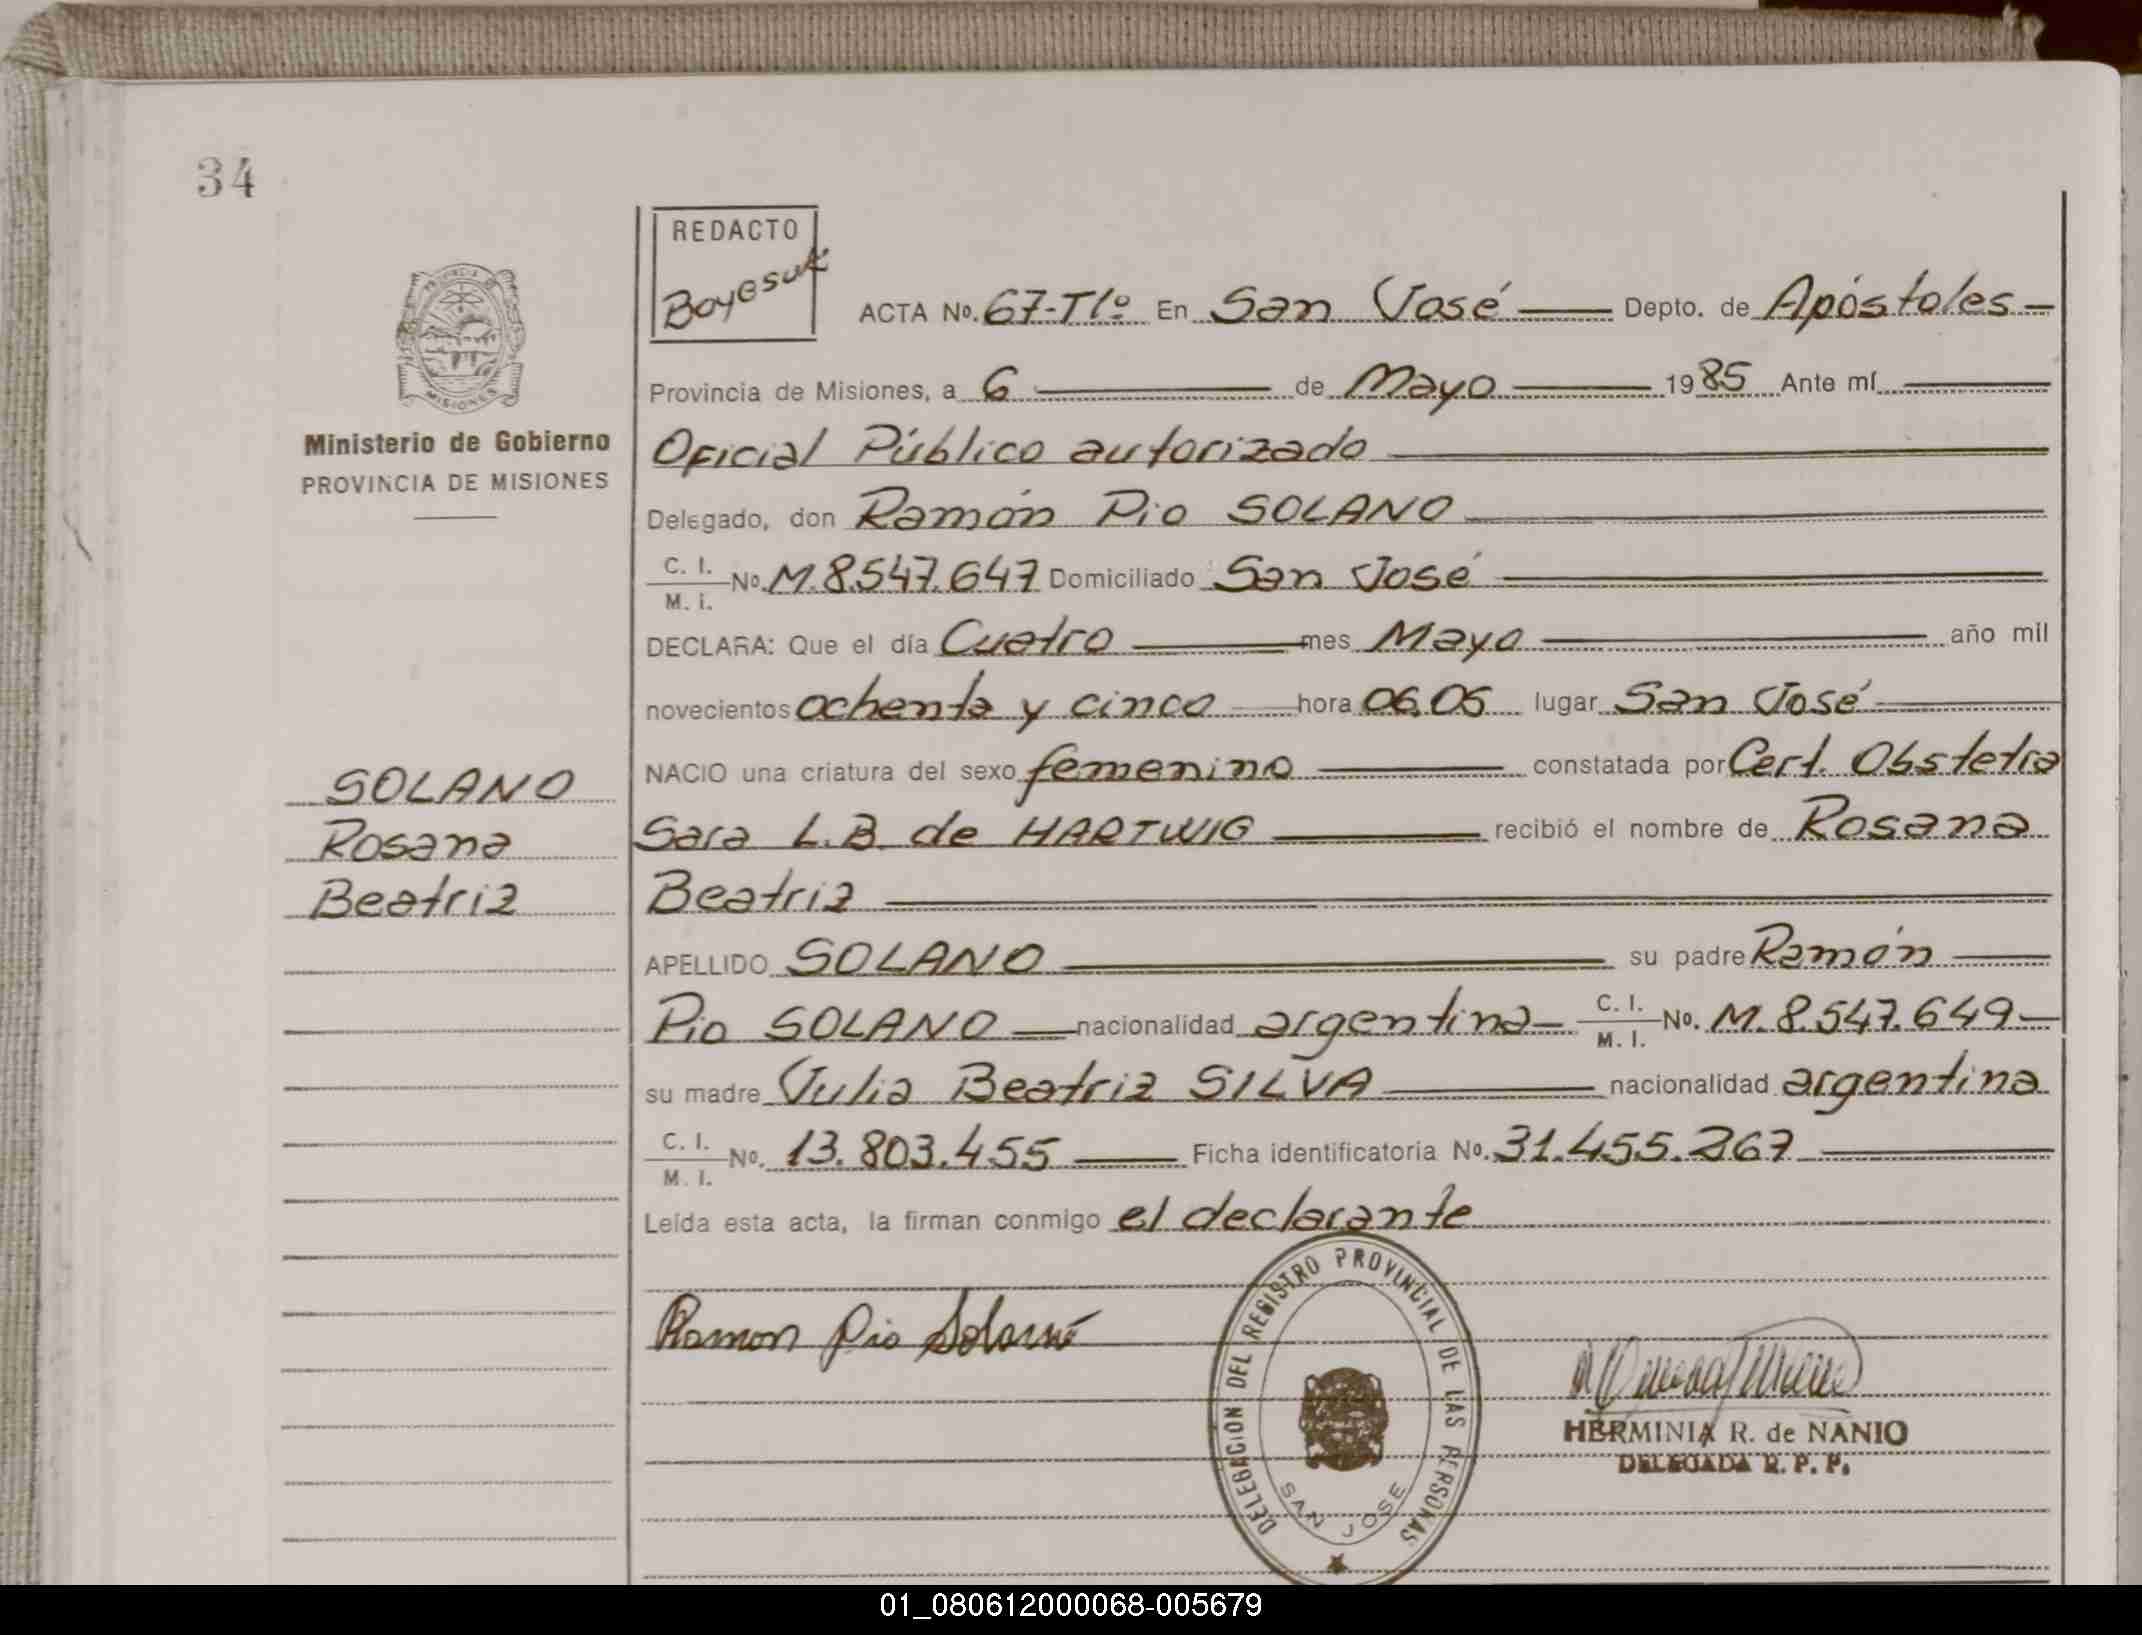 34
REDACTO
Boyesuk
ACTA No. 67-T1º En San José Depto. de Apóstoles
Provincia de Misiones, a 6 de Mayo 1985 Ante mí
Oficial Público autorizado
Delegado, don Ramón Pio SOLANO
C. I.
M. I. No. M.8.547.647 Domiciliado San José
DECLARA: Que el día Cuatro mes Mayo año mil
novecientos ochenta y cinco hora 06,05 lugar San José
NACIO una criatura del sexo femenino constatada por Cert. Obstetra
Sara L.B. de HARTWIG recibió el nombre de Rosana
Beatriz
APELLIDO SOLANO su padre Ramón
Pio SOLANO nacionalidad argentina C. I.
M. I. No. M.8.547.649
su madre Julia Beatriz SILVA nacionalidad argentina
C. I.
M. I. No. 13.803.455 Ficha identificatoria No. 31.455.267
Leída esta acta, la firman conmigo el declarante
Ramon Pio Solano
DELEGACION DEL REGISTRO PROVINCIAL DE LAS PERSONAS
SAN JOSE
HERMINIA R. de NANIO
DELEGADA R. P. P.
PROVINCIA DE
MISIONES
Ministerio de Gobierno
PROVINCIA DE MISIONES
SOLANO
Rosana
Beatriz
01_080612000068-005679